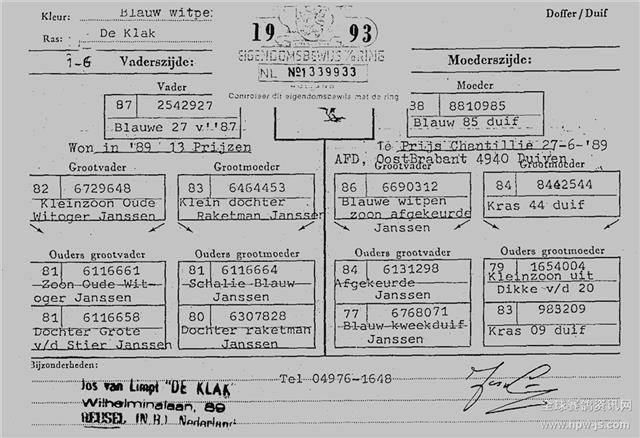 Kleur: Blauw witpen
Doffer / Duif
Ras: De Klak
1993
EIGENDOMSBEWIJS v/RING
NL Nº1339933
HOLLAND
Controleer dit eigendomsbewijs met de ring
1-6 Vaderszijde:
Moederszijde:
Vader
87 2542927
Blauwe 27 v.'87
Moeder
88 8810985
Blauw 85 duif
Won in '89 13 Prijzen
1e Prijs Chantillie 27-6-'89
AFD, OostBrabant 4940 Duiven
Grootvader
82 6729648
Kleinzoon Oude
Witoger Janssen
Grootmoeder
83 6464453
Klein dochter
Raketman Janssen
Grootvader
86 6690312
Blauwe witpen
zoon afgekeurde
Janssen
Grootmoeder
84 8442544
Kras 44 duif
Ouders grootvader
81 6116661
Zoon Oude Wit-
oger Janssen
81 6116658
Dochter Grote
v/d Stier Janssen
Ouders grootmoeder
81 6116664
Schalie Blauw
Janssen
80 6307828
Dochter raketman
Janssen
Ouders grootvader
84 6131298
Afgekeurde
Janssen
77 6768071
Blauw kweekduif
Janssen
Ouders grootmoeder
79 1654004
Kleinzoon uit
Dikke v/d 20
83 983209
Kras 09 duif
Bijzonderheden:
Jos van Limpt "DE KLAK"
Wilhelminalaan, 89
REUSEL (N.B.) Nederland
Tel 04976-1648
全球赛鸽资讯网
www.hpw-js.com